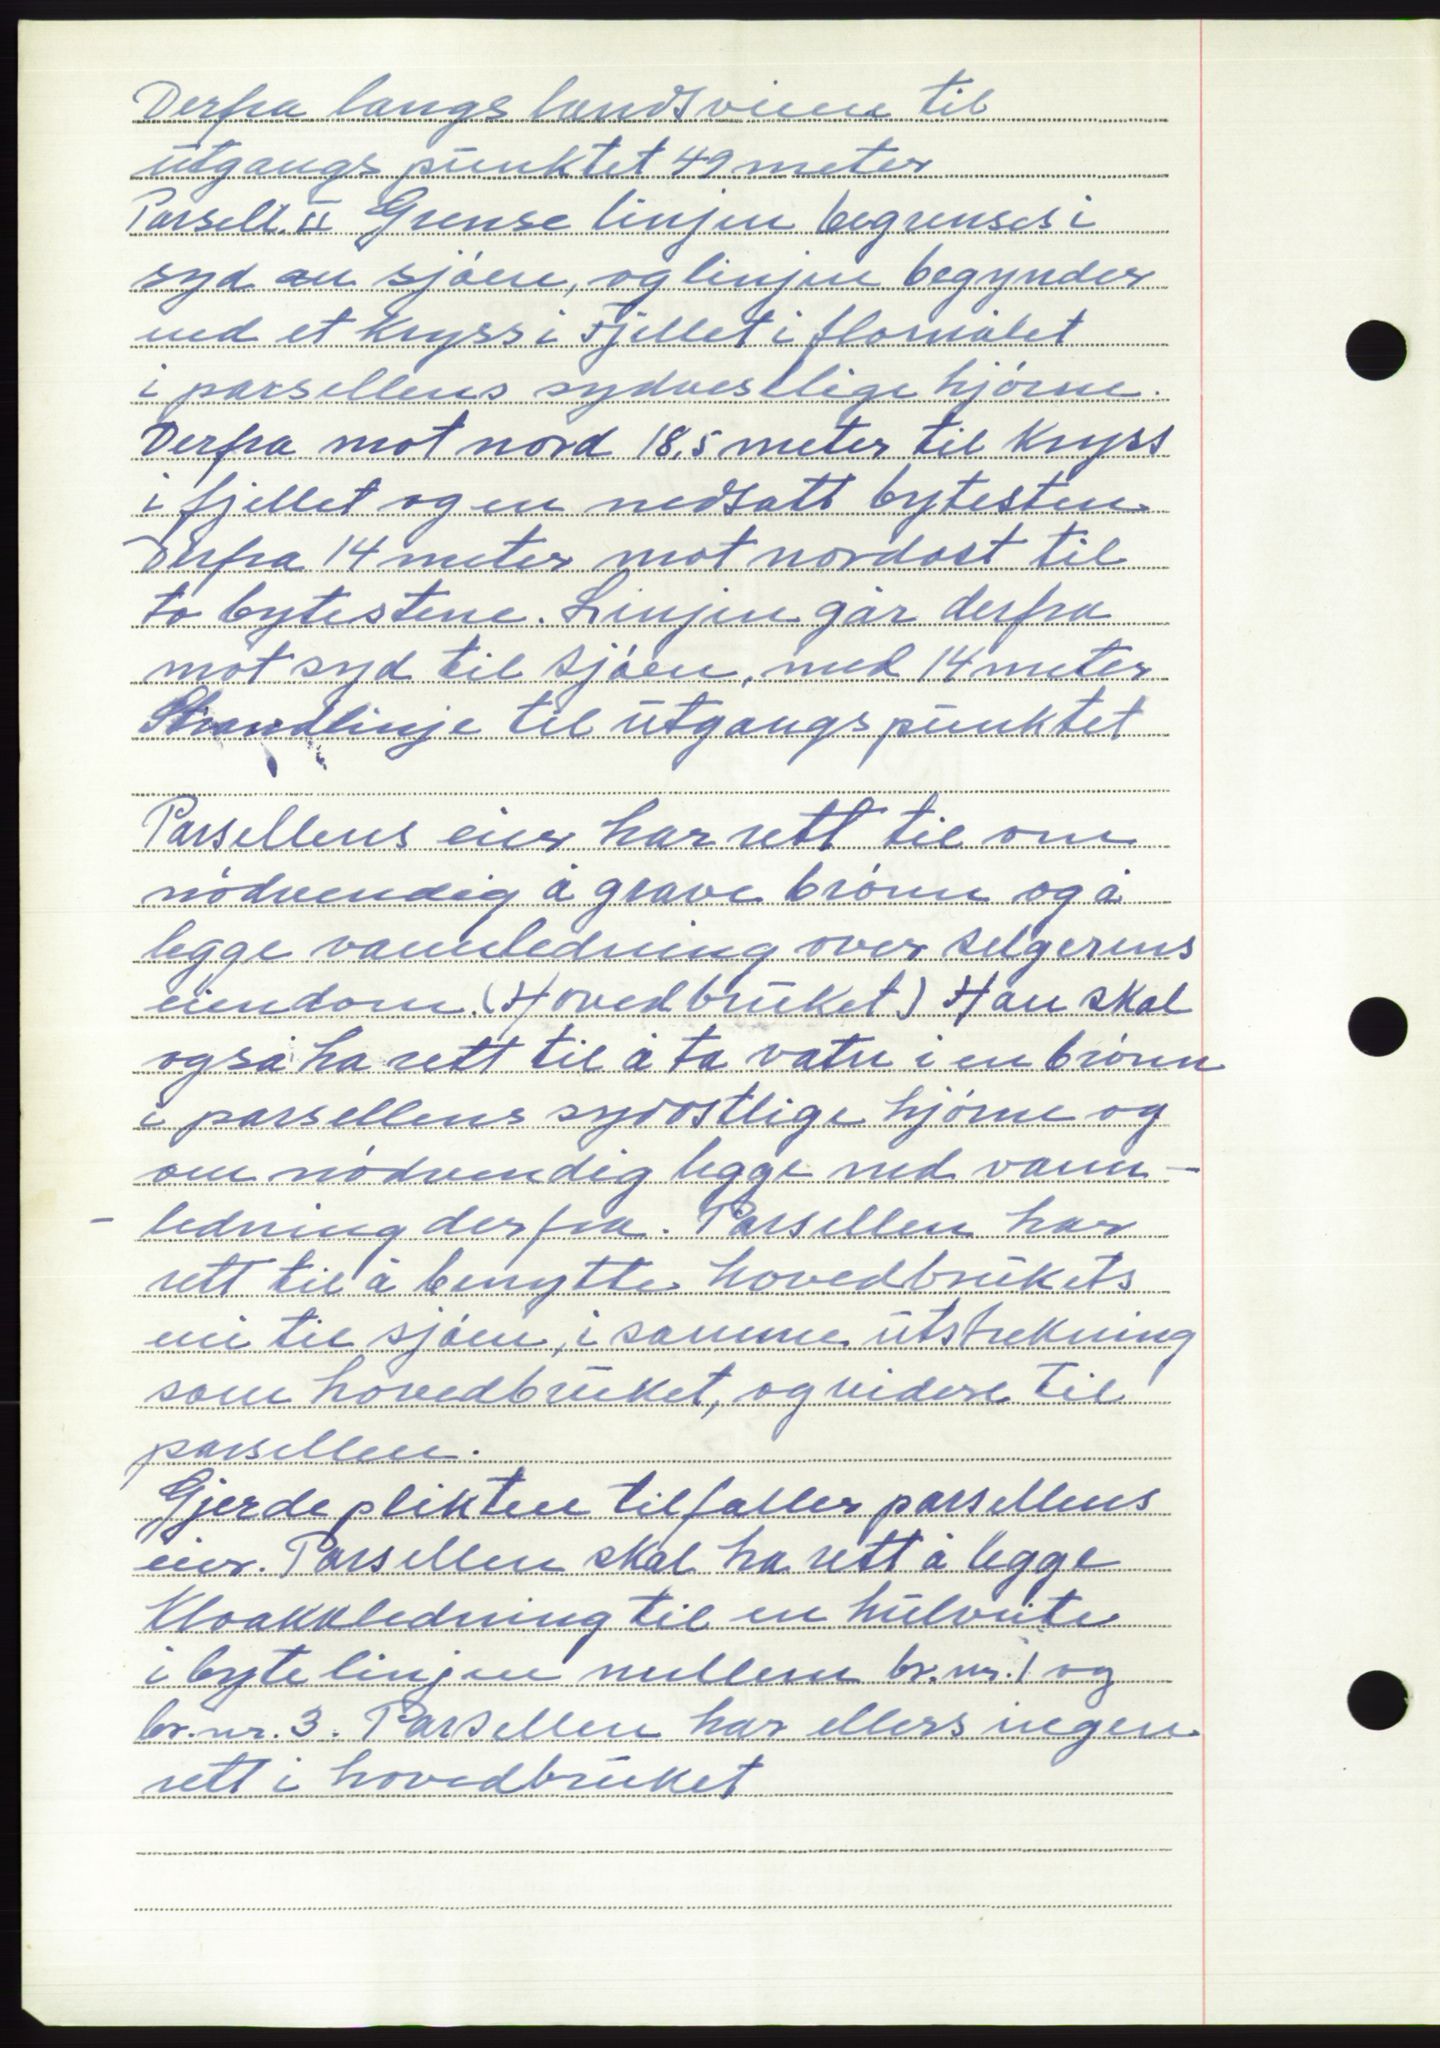 Derfra langs landsveien til
utgangspunktet 49 meter
Parsell. II Grense linjen begrenses i
syd av sjöen, og linjen begynder
ved et kryss i Fjellet i flomålet
i parsellens sydvestlige hjörne.
Derfra mot nord 18,5 meter til kryss
i fjellet og en nedsatt bytesten.
Derfra 14 meter mot nordost til
to bytestene. Linjen går derfra
mot syd til sjöen, med 14 meter
Strandlinje til utgangspunktet
Parsellens eier har rett til om
nödvendig å grave brönn og å
legge vannledning over selgerens
eiendom. (Hovedbruket) Han skal
også ha rett til å ta vatn i en brönn
i parsellens sydostlige hjörne og
om nödvendig legge ned vann-
- ledning derfra. Parsellen har
rett til å benytte hovedbrukets
vei til sjöen, i samme utstrekning
som hovedbruket, og videre til
parsellen.
Gjerdeplikten tilfaller parsellens
eier. Parsellen skal ha rett å legge
Kloakkledning til en hulveite
i bytelinjen mellem br. nr. 1 og
br. nr. 3. Parsellen har ellers ingen
rett i hovedbruket